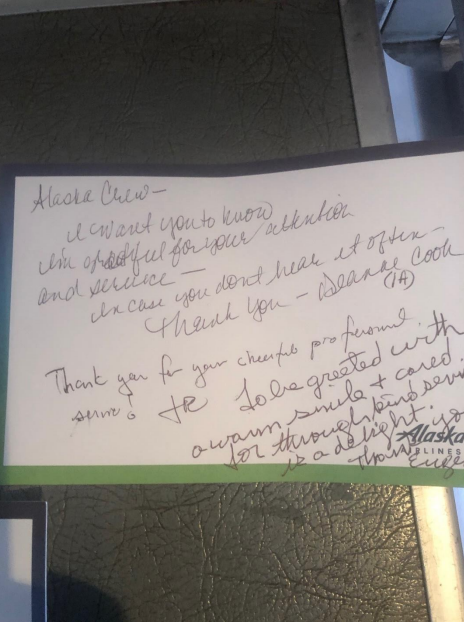 Alaska Crew-
I want you to know
I'm grateful for your attention
and service -
In case you don't hear it often -
Thank You - Deanne Cook
(1A)
Thank you for your cheerful professional
service JR
To be greeted with
a warm smile + cared
for through kind servi
is a delight. yo
Than
Euge
Alaska
AIRLINES